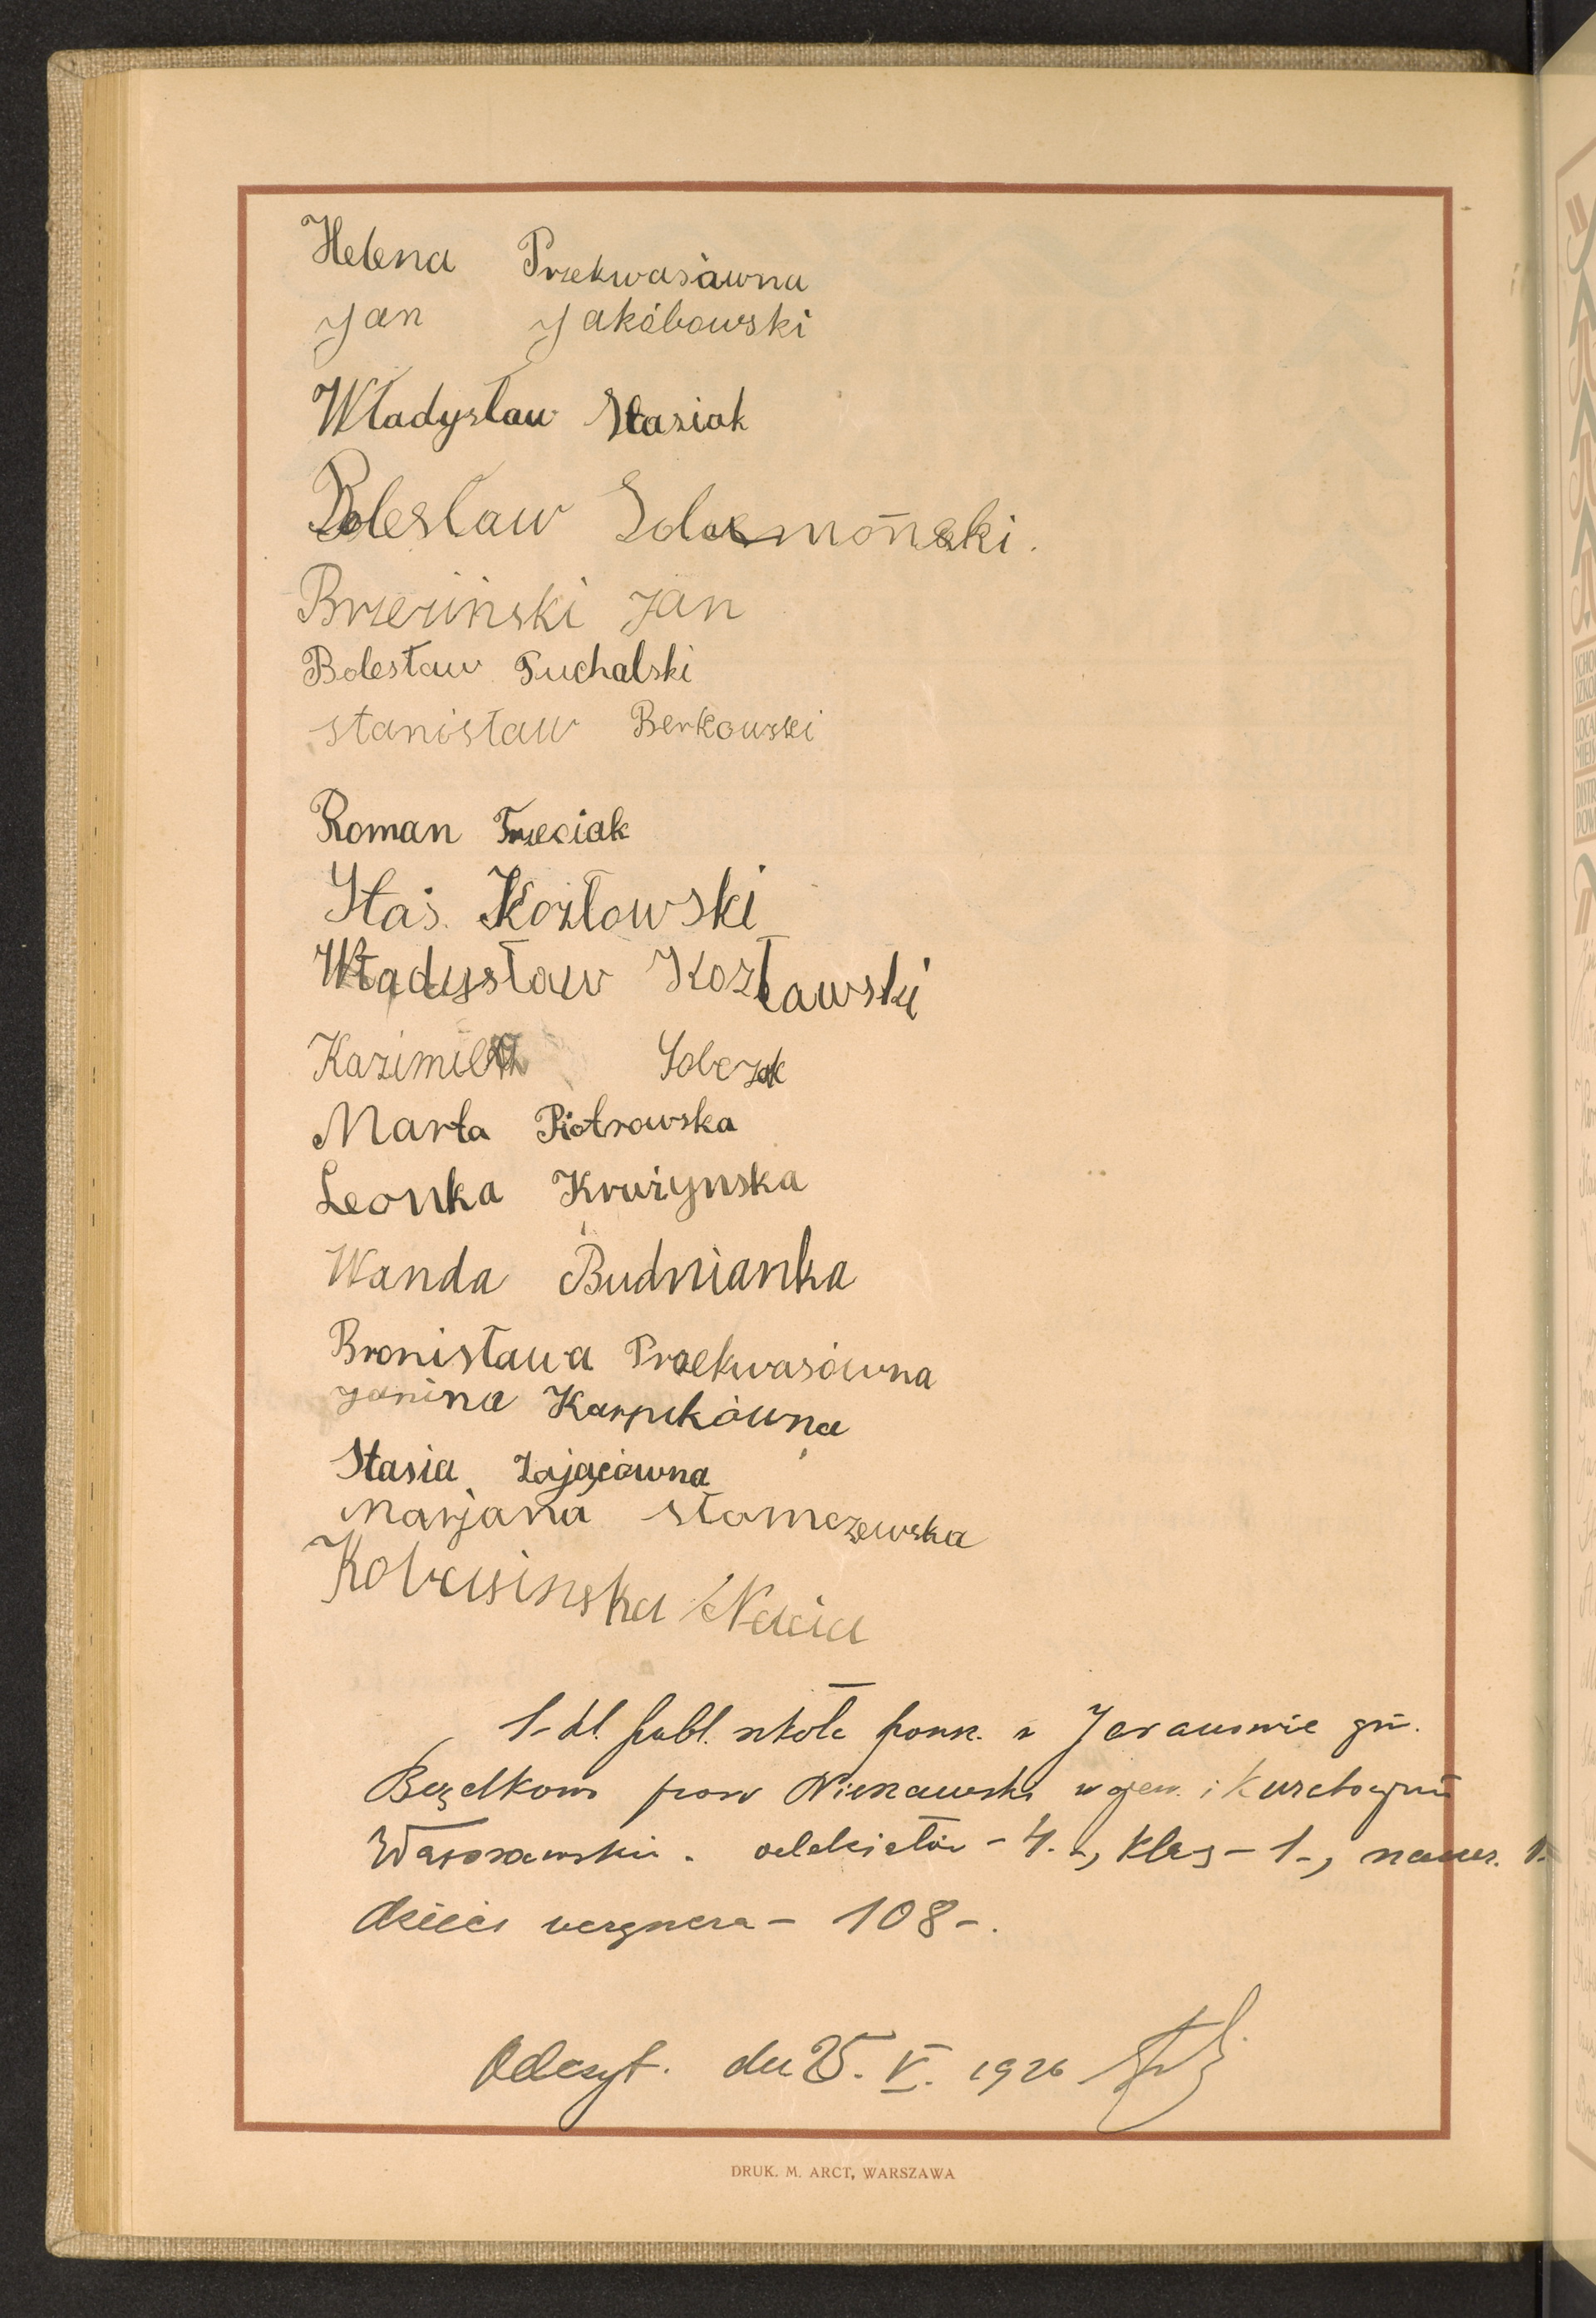 Helena Przekwasówna
Jan Jakóbowski
Władysław Stasiak
Bolesław
Brzeziński Jan
Bolesław Puchalski
stanisław Berkowski
Roman Trzeciak
Staś. Kozłowski
Władysław Kozławski
Kazimierz Sobczak
Marta Piotrowska
Leonka Krużynska
Wanda Budnianka
Bronisława Przekwasówna
Janina Karpikówna
Stasia Zającówna
Marjana słomczewska
Kobusinska Nacia
1-kl. publ. szkoła powsz. w gm.
pow Nieszawski wojew. i Kuratorjum
Warszawskie. oddziałów - 4. -, klas - 1 -, naucz. 1.
dzieci uczęszcza - 108 -.
Odczyt. dn 25. V. 1926
DRUK. M. ARCT, WARSZAWA